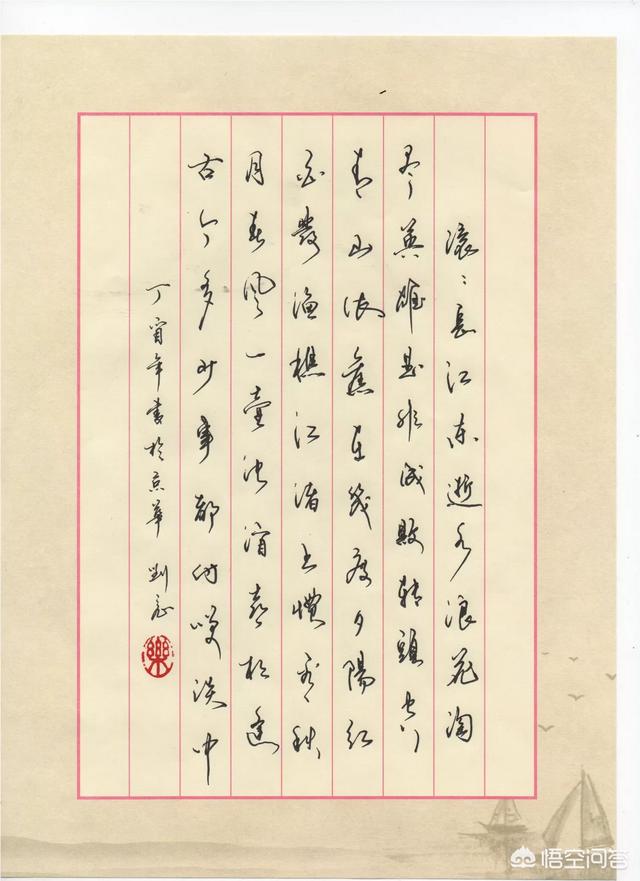 滚滚長江东逝水浪花淘
尽英雄是非成败转頭空
青山依舊在幾度夕陽红
白髮渔樵江渚上惯看秋
月春风一壶浊酒喜相逢
古今多少事都付笑谈中
丁酉年書於京華 刘
樂
悟空问答